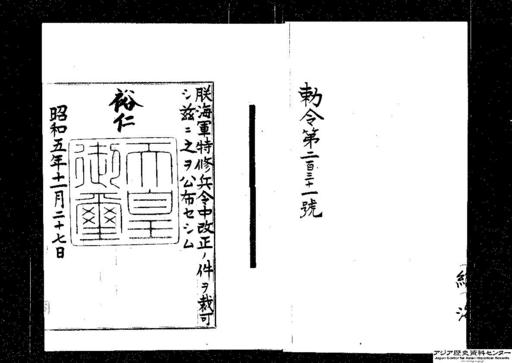 勅令第二百三十一號
朕海軍特修兵令中改正ノ件ヲ裁可
シ茲ニ之ヲ公布セシム
裕仁
天皇
御璽
昭和五年十一月二十七日
アジア歴史資料センター
Japan Center for Asian Historical Records